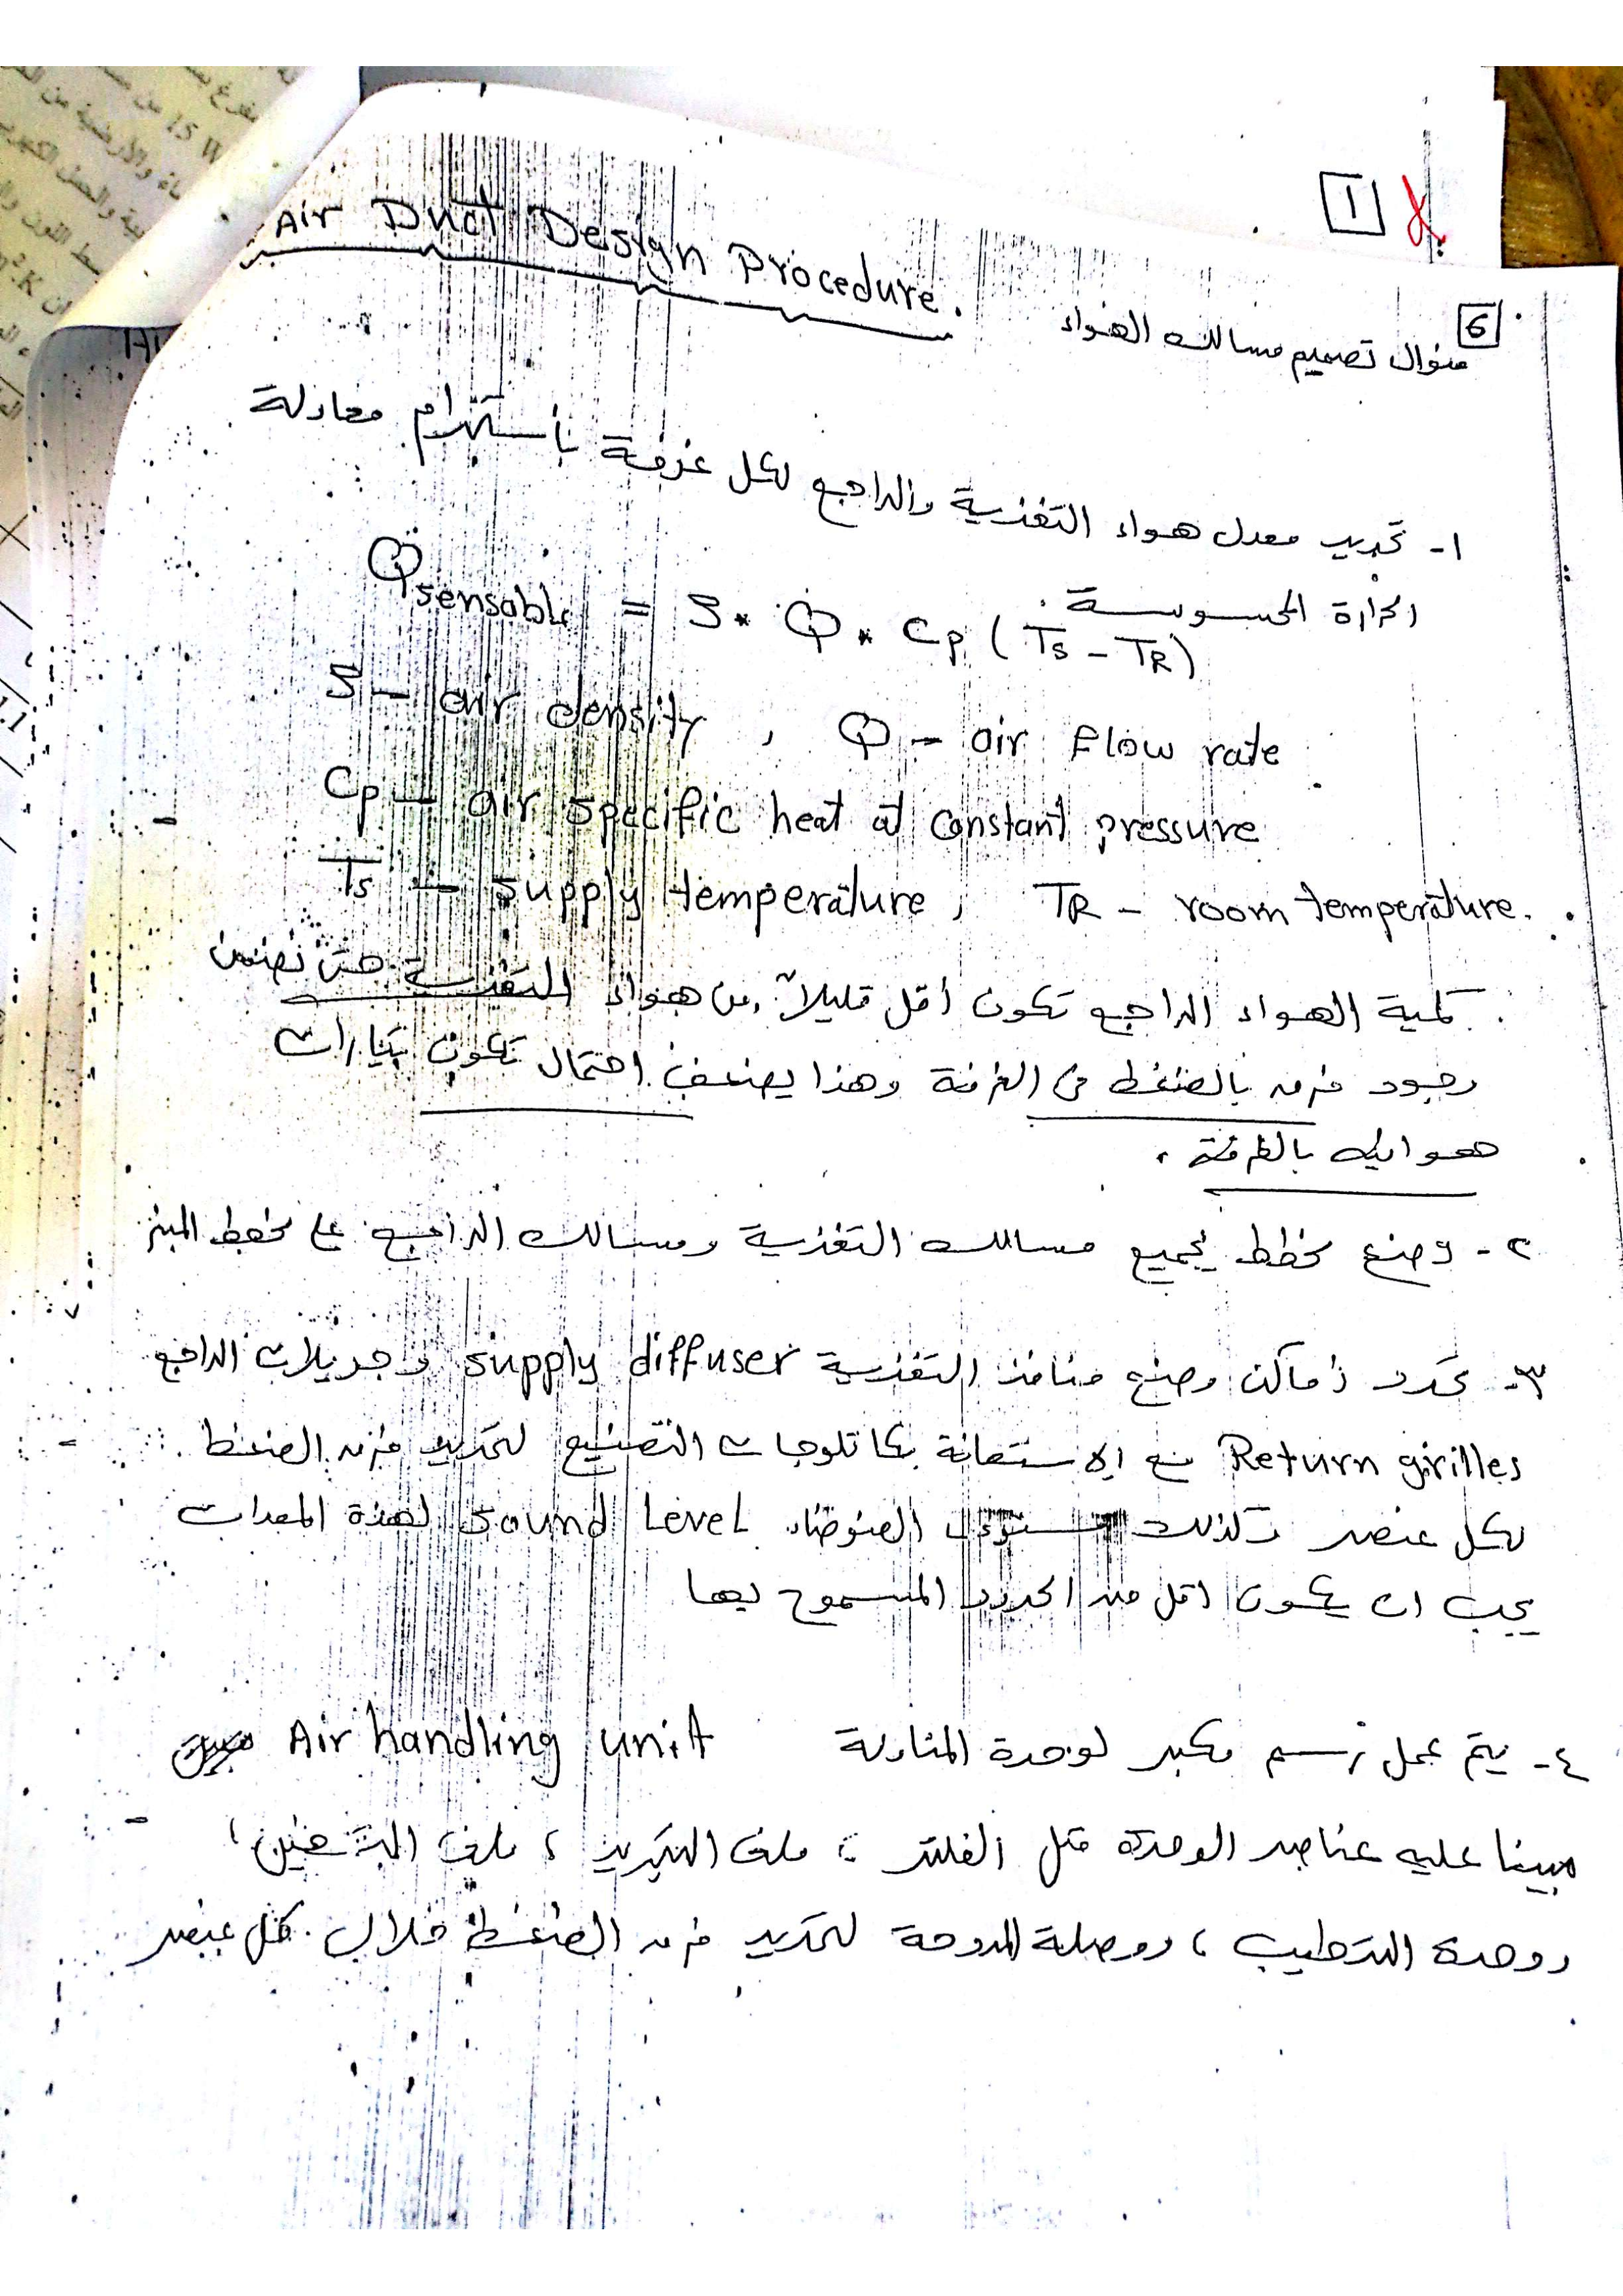 1
Air Duct Design Procedure.
6
منوال تصميم مسالك الهواء
١- تحديد معدل هواء التغذية والراجع لكل غرفة بأستخدام معادلة
الحرارة المحسوسة.
Qsensable = ς * Q * Cp ( Ts - TR )
ς - air density , Q - air flow rate
Cp - air specific heat at constant pressure
Ts - supply temperature , TR - room temperature.
كمية الهواء الراجع تكون أقل قليلاً من هواء التغذية حتى نضمن
وجود فرق بالضغط في الغرفة وهذا يضعف احتمال تكون تيارات
هوائية بالغرفة .
٢- وضع مخطط لجميع مسالك التغذية ومسالك الراجع على مخطط
٣- تحدد أماكن وضع منافذ التغذية supply diffuser وجريلات الراجع
Return girilles مع الاستعانة بكاتلوجات التصنيع لتحديد فرق الضغط
لكل عنصر وكذلك مستوى الضوضاء Sound Level لهذه المعدات
يجب ان يكون اقل من الحدود المسموح بها
٤- يتم عمل رسم مكبر لوحدة المناولة Air handling unit
مبينا عليه عناصر الوحدة مثل الفلتر ، ملف التبريد ، ملف التسخين ،
ووحدة الترطيب ، ووصلة المروحة لتحديد فرق الضغط خلال كل عنصر